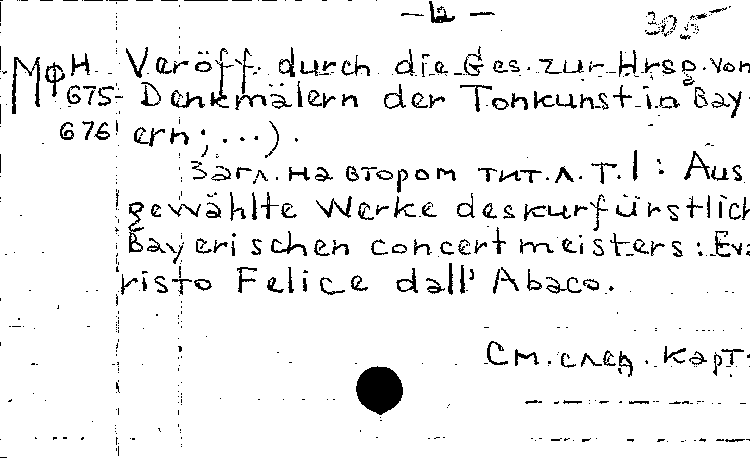 — 2 —
305
МФ Н Veröff. durch die Ges. zur Hrsg. von
675- Denkmälern der Tonkunst in Bay-
676 ern; ...).
Загл. на втором тит. л. Т. I : Aus
gewählte Werke des kurfürstlich
Bayerischen concertmeisters : Eva
risto Felice dall' Abaco.
См. след. карт.